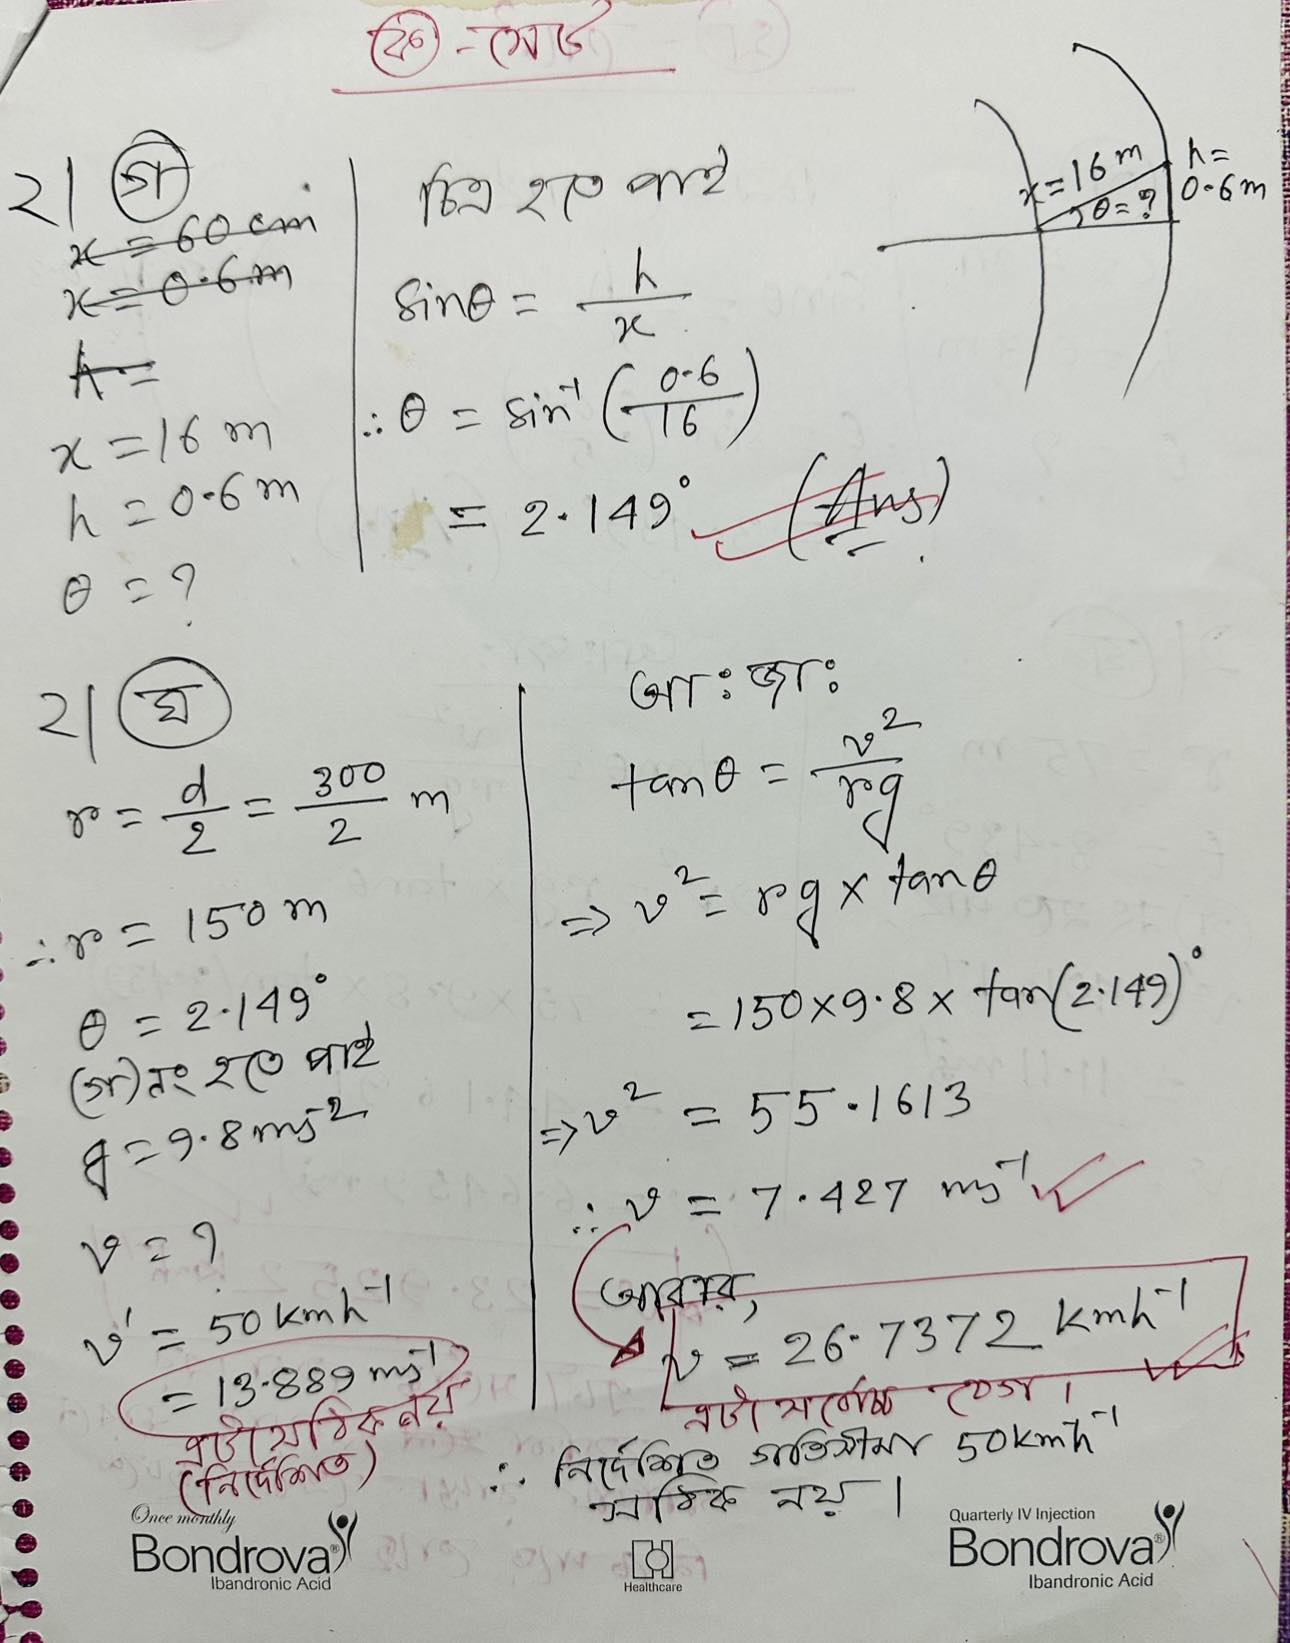 ক - সেট
২। গ
x = 60 cm
x = 0.6 m
h =
x = 16 m
h = 0.6 m
θ = ?
চিত্র হতে পাই
sinθ = h/x
∴ θ = sin⁻¹ (0.6/16)
= 2.149° (Ans)
x = 16 m
θ = ?
h =
0.6 m
২। ঘ
r = d/2 = 300/2 m
∴ r = 150 m
θ = 2.149°
(গ) নং হতে পাই
g = 9.8 ms⁻²
v = ?
v' = 50 kmh⁻¹
= 13.889 ms⁻¹
এটা সঠিক নয়
(নির্দেশিত)
আঃ জাঃ
tanθ = v²/rg
⇒ v² = rg × tanθ
= 150 × 9.8 × tan(2.149)°
⇒ v² = 55.1613
∴ v = 7.427 ms⁻¹
আবার,
v = 26.7372 kmh⁻¹
এটা সর্বোচ্চ বেগ।
∴ নির্দেশিত গতিসীমা 50 kmh⁻¹
সঠিক নয়।
Once monthly
Bondrova®
Ibandronic Acid
Healthcare
Quarterly IV Injection
Bondrova®
Ibandronic Acid